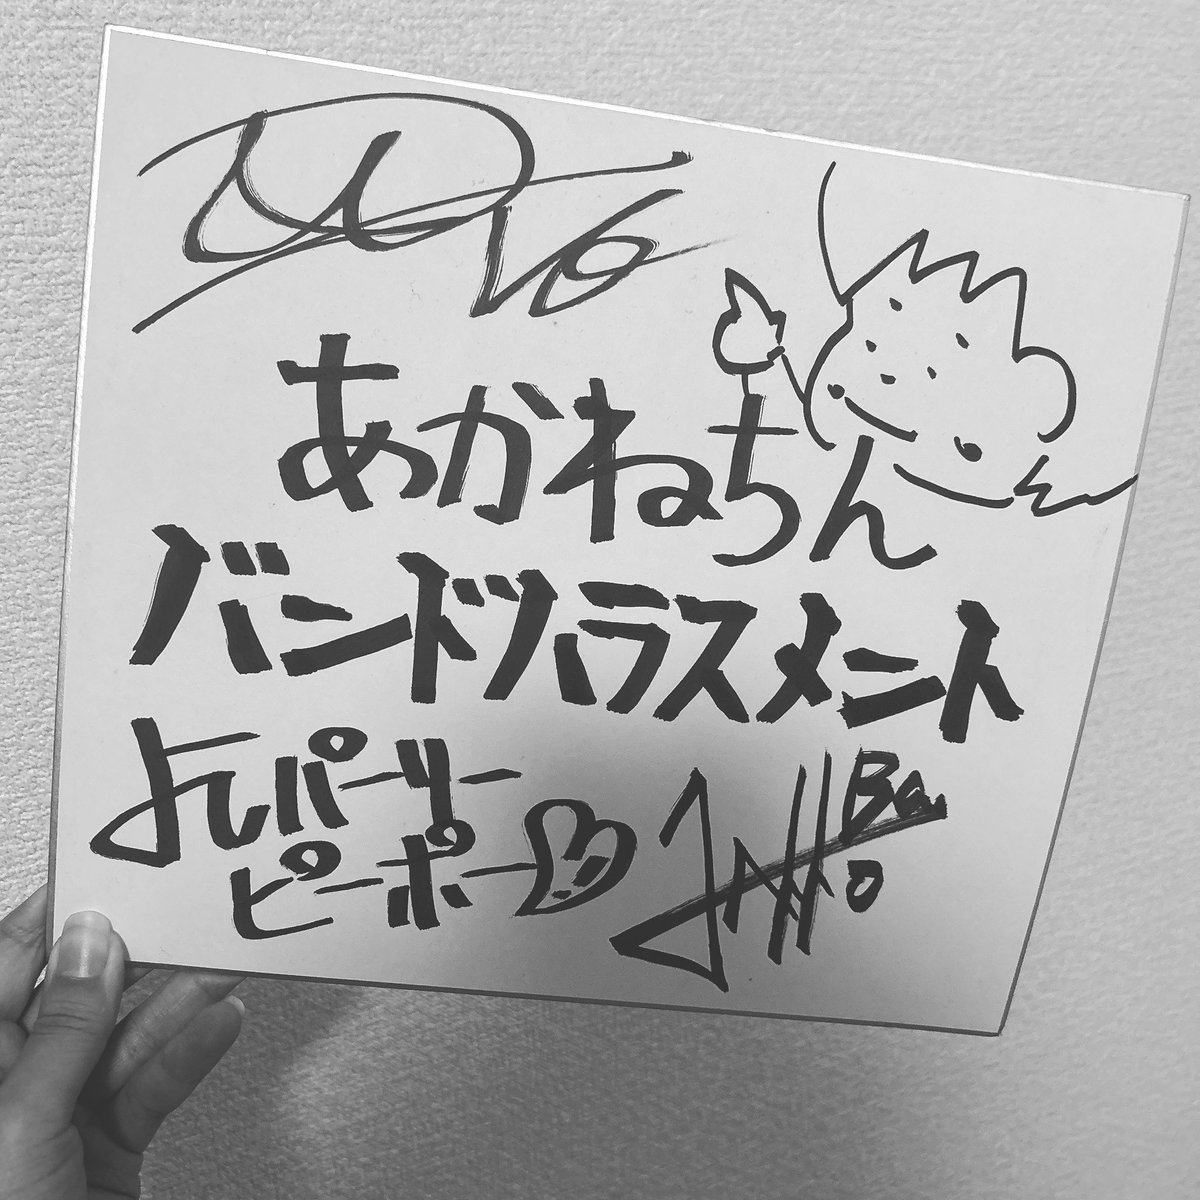 Vo
あかねちん
バンドハラスメント
よしパーリー
ピーポー
Ba.